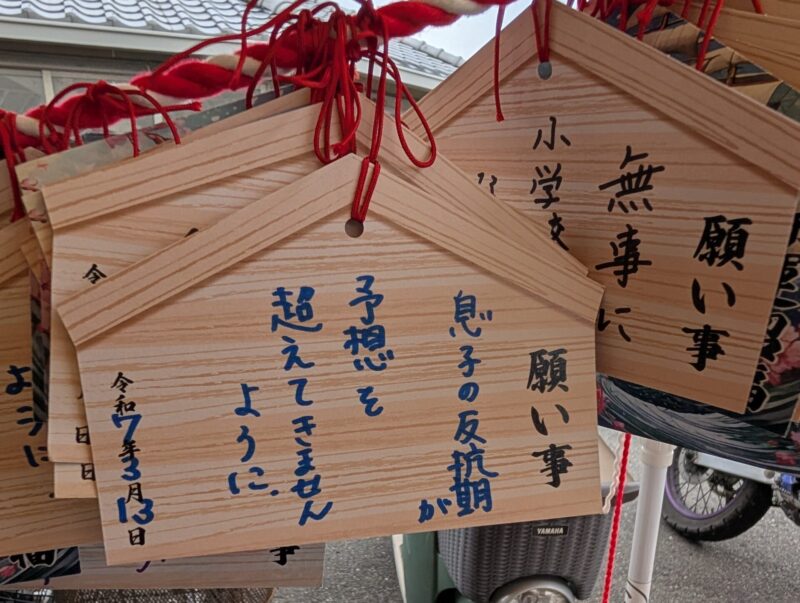 願い事
息子の反抗期が
予想を
超えてきません
ように.
令和7年3月13日
願い事
無事に
小学校
令
月
日
日
ように
事
YAMAHA